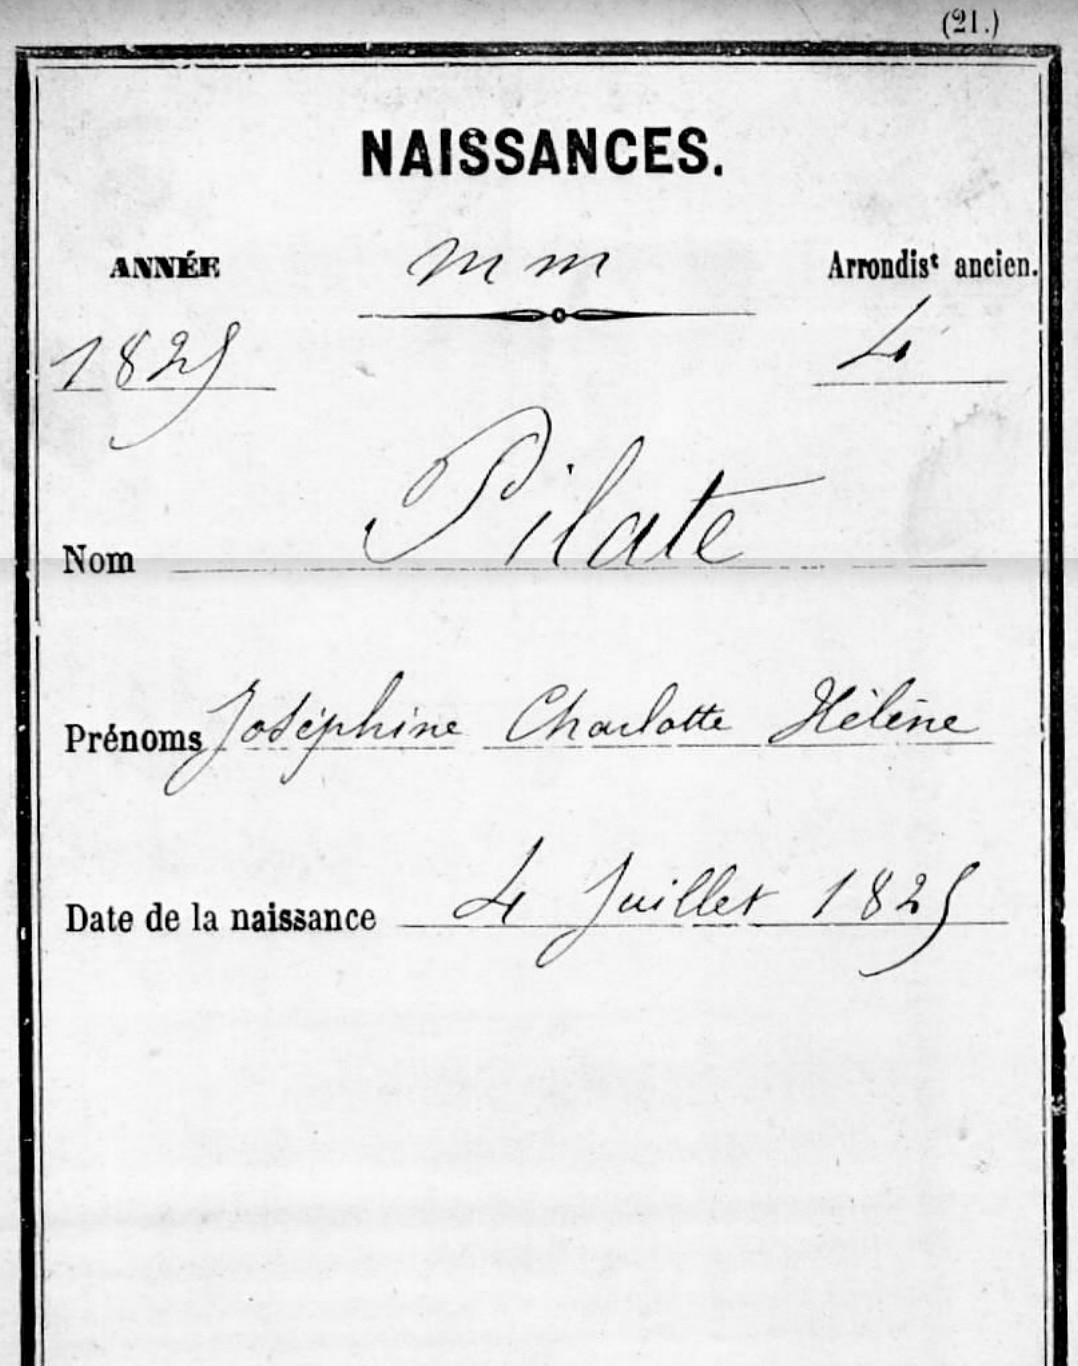 (21.)
NAISSANCES.
ANNÉE mm Arrondis^t ancien.
1825 4
Nom Pilate
Prénoms Joséphine Charlotte Hélène
Date de la naissance 4 Juillet 1825